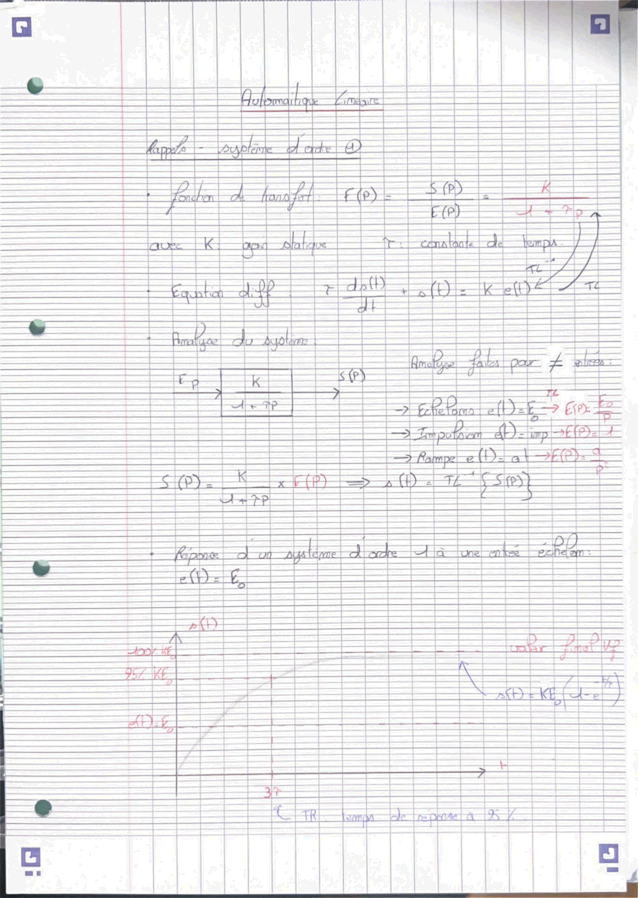 Automatique Linéaire
Rappels - système d'ordre 1
• fonction de transfert : F(P) = S(P) / E(P) = K / 1 + τp
avec K : gain statique τ : constante de temps.
TL⁻¹
• Equation diff τ ds(t)/dt + s(t) = K e(t) TL
• Analyse du système :
Analyse faites pour ≠ entrées :
E P → K / 1 + τP → S(P)
→ Echelons e(t) = E₀ TL → E(P) = E₀/P
→ Impulsion e(t) = imp → E(P) = 1
→ Rampe e(t) = at → E(P) = a/p²
S(P) = K / 1 + τP × E(P) ⇒ s(t) = TL⁻¹ {S(P)}
• Réponse d'un système d'ordre 1 à une entrée échelon :
e(t) = E₀
s(t)
100% KE₀
valeur final Vf
95% KE₀
s(t) = KE₀(1-e^-t/τ)
e(t) = E₀
t
3τ
TR : temps de réponse à 95%